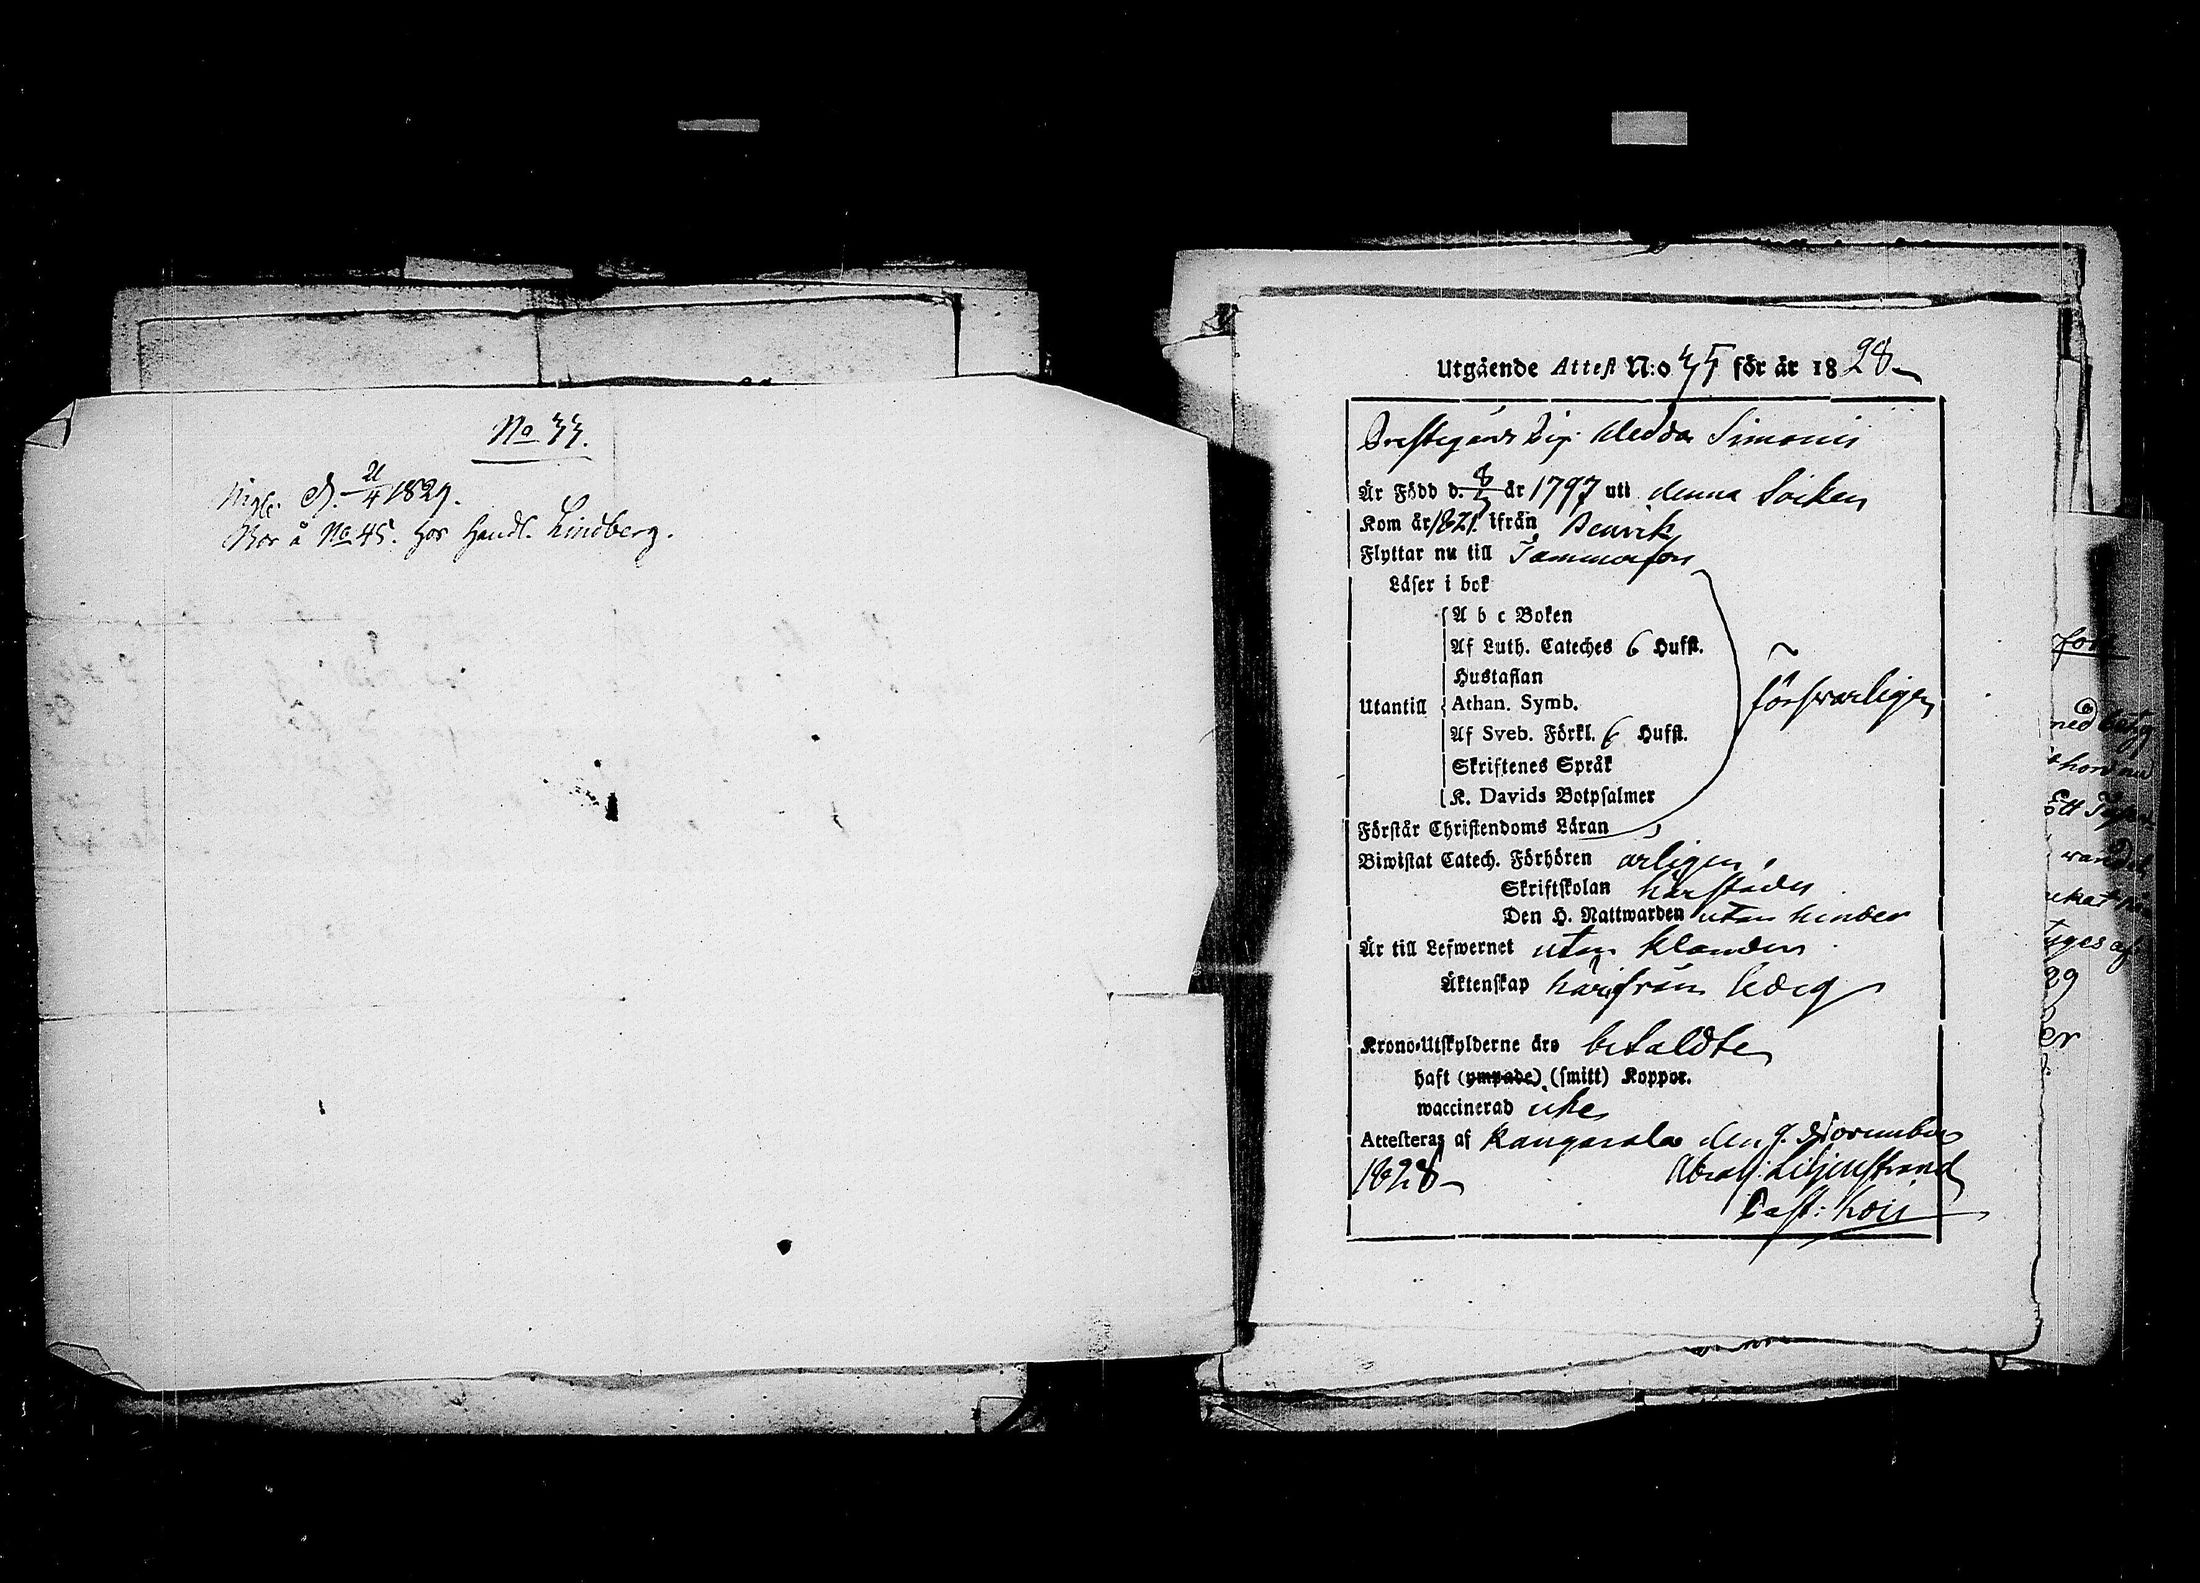 No 33.
d. 21/4 1829.
Bor å No 45. hos Handl. Lindberg.
Utgående Attest N:o 55 för år 1828
Hedda Simonis
Är Född d. 8/5 år 1797 uti denna Socken
Kom år 1821 ifrån
Flyttar nu till Tammerfors
Läser i bok
A b c Boken
Af Luth. Cateches 6 Hufst.
Hustaflan
Utantill Athan. Symb.
försvarligen
Af Sveb. Förkl. 6 Hufst.
Skriftenes Språk
K. Davids Botpsalmer
Förstår Christendoms Läran
Biwistat Catech. Förhören årligen,
Skriftskolan härstädes
Den H. Nattwarden utan hinder
Är till Lefwernet utan klander
Äktenskap härifrån ledig
Krono-Utskylderne äro betaldte
haft (ympade) (smitt) Koppor.
waccinerad icke
Attesteras af Kangasala den 9. November
1828
Abrah: Liljenstrand
Past: Loci